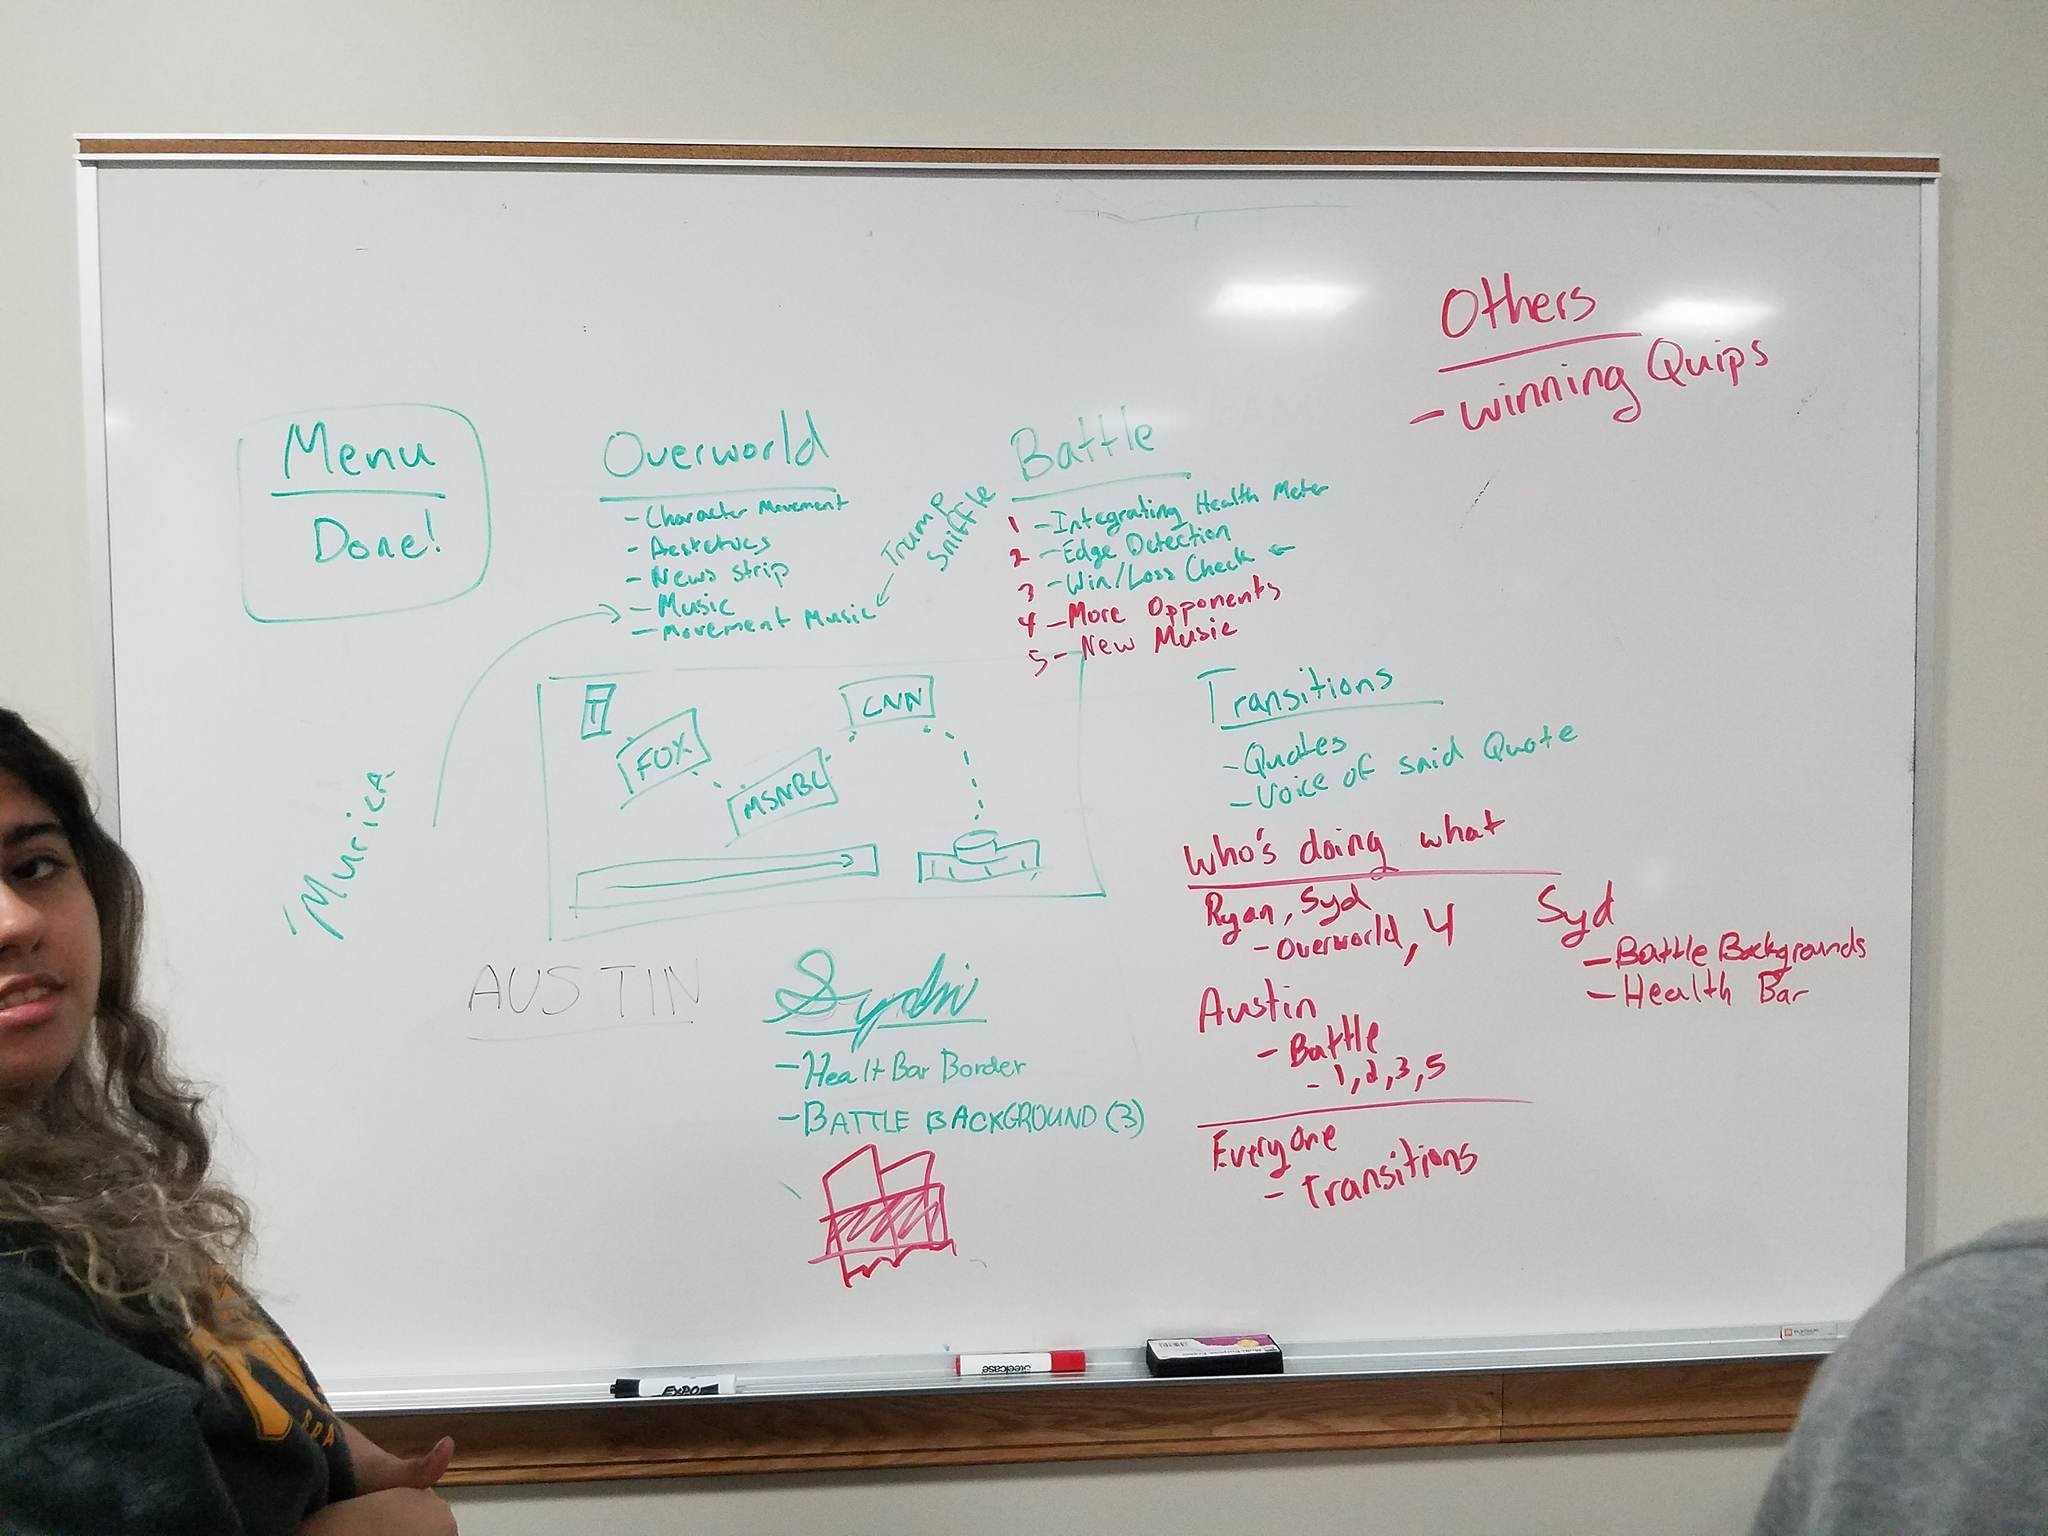 Others
- Winning Quips
Menu
Done!
Overworld
- Character Movement
- News strip
- Music
- Movement Music
Trump
Sniffle
Battle
1 - Integrating Health Meter
2 - Edge Detection
3 - Win/Loss Check ←
4 - More Opponents
5 - New Music
'Murica
FOX
MSNBC
CNN
Transitions
- Quotes
- Voice of said Quote
Who's doing what
Ryan, Syd
- Overworld, 4
Syd
- Battle Backgrounds
- Health Bar
Austin
- Battle
- 1,2,3,5
Everyone
- Transitions
AUSTIN
- Healt Bar Border
- BATTLE BACKGROUND (3)
EXPO
Steelcase